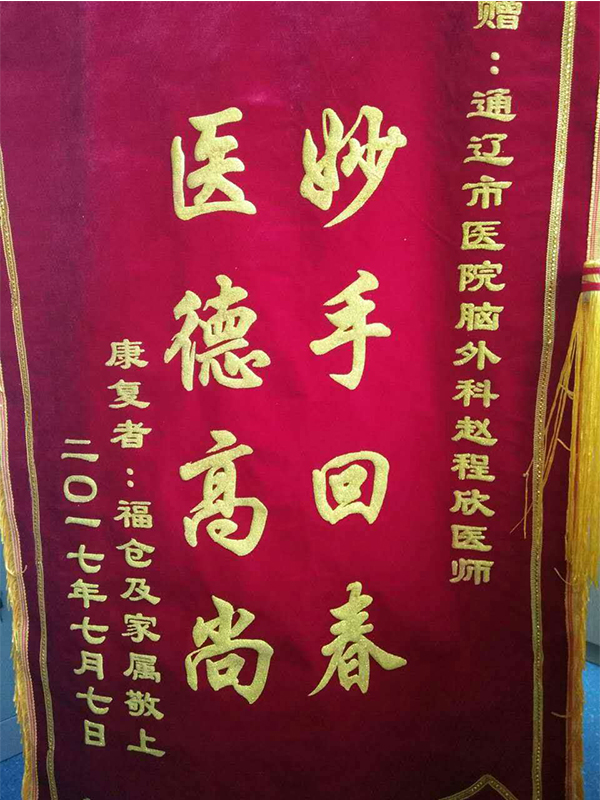 赠：通辽市医院脑外科赵程欣医师
妙手回春
医德高尚
康复者：福仓及家属敬上
二〇一七年七月七日